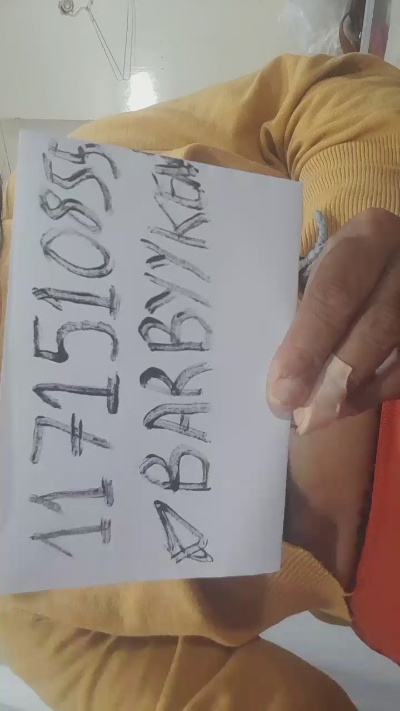 1171510855
BARBYYKEN